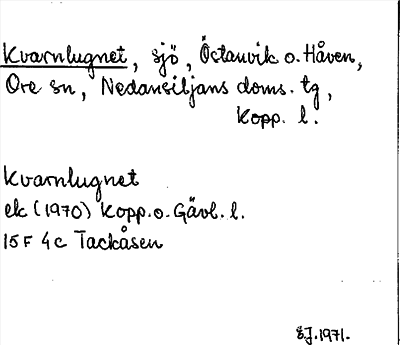 Kvarnlugnet, sjö, Östanvik o. Håven,
Ore sn, Nedansiljans doms. tg,
Kopp. l.
Kvarnlugnet
ek (1970) Kopp. o. Gävl. l.
15F 4c Tackåsen
S.J. 1971.